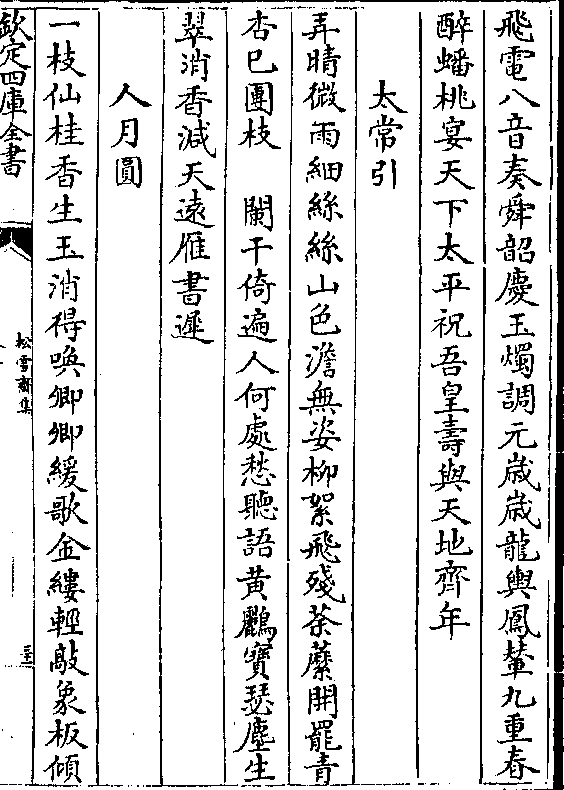 飛電八音奏舜韶慶玉燭調元歳歳龍輿鳳輦九重春
醉蟠桃宴天下太平祝吾皇壽與天地齊年
太常引
弄晴微雨細絲絲山色澹無姿柳絮飛殘荼蘼開罷青
杏已團枝　闌干倚遍人何處愁聽語黄鸝寶瑟塵生
翠消香減天遠雁書遲
人月圓
一枝仙桂香生玉消得唤卿卿緩歌金縷輕敲象板傾
欽定四庫全書
松雪齋集